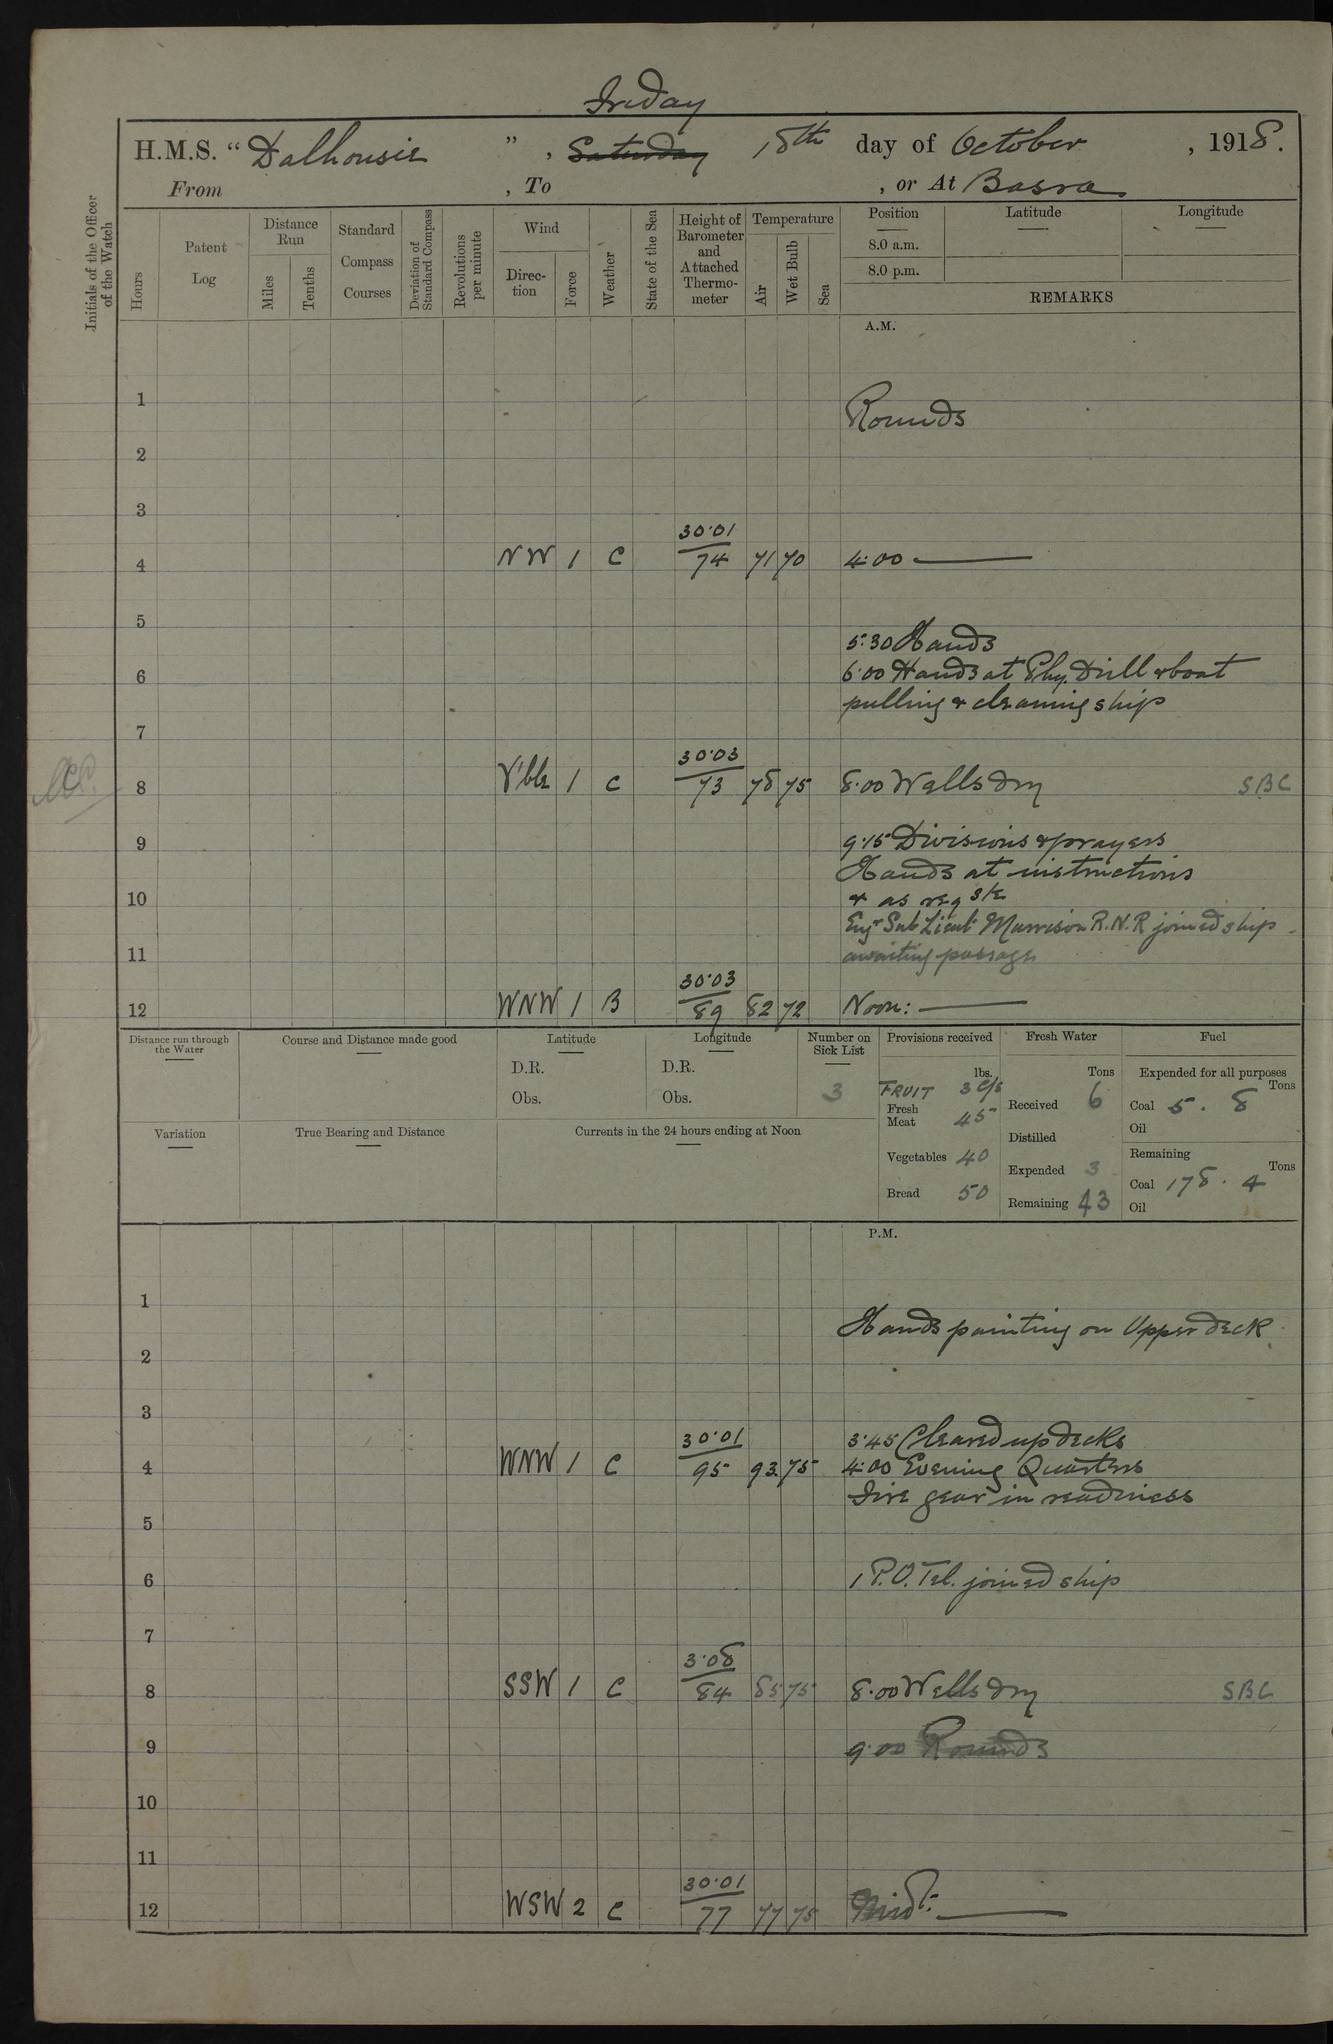 Friday
H.M.S. "Dalhousie", Saturday 18th day of October, 1918.
From , To , or At Basra
Initials of the Officer of the Watch
Hours
Patent Log
Distance Run
Miles
Tenths
Standard Compass Courses
Deviation of Standard Compass
Revolutions per minute
Wind
Direc-tion
Force
Weather
State of the Sea
Height of Barometer and Attached Thermo-meter
Temperature
Air
Wet Bulb
Sea
Position
8.0 a.m.
8.0 p.m.
Latitude
Longitude
REMARKS
A.M.
1
Rounds
2
3
30.01
4 NW 1 C 74 71 70 4.00
5
5.30 Hands
6 6.00 Hands at Phy. Drill & boat
pulling & cleaning ship
7
30.03
8 V'ble 1 C 73 78 75 8.00 Wells dry SBC
9 9.15 Divisions & prayers
Hands at instructions
10 & as reqste
Engr Sub Lieut Murrison R.N.R joined ship
11 awaiting passage
30.03
12 WNW 1 B 89 82 72 Noon:
Distance run through the Water
Course and Distance made good
Latitude
D.R.
Obs.
Longitude
D.R.
Obs.
Number on Sick List
3
Provisions received
lbs.
FRUIT 3 c/s
Fresh Meat 45
Vegetables 40
Bread 50
Fresh Water
Tons
Received 6
Distilled
Expended 3
Remaining 43
Fuel
Expended for all purposes
Tons
Coal 5. 8
Oil
Remaining
Tons
Coal 178. 4
Oil
Variation
True Bearing and Distance
Currents in the 24 hours ending at Noon
P.M.
1
Hands painting on Upper deck
2
3
30.01 3.45 Cleared up decks
4 WNW 1 C 95 93 75 4.00 Evening Quarters
Fire gear in readiness
5
6 1 P.O. Tel. joined ship
7
3.08
8 SSW 1 C 84 85 75 8.00 Wells dry SBC
9 9.00 Rounds
10
11
30.01
12 WSW 2 C 77 77 75 Midt: